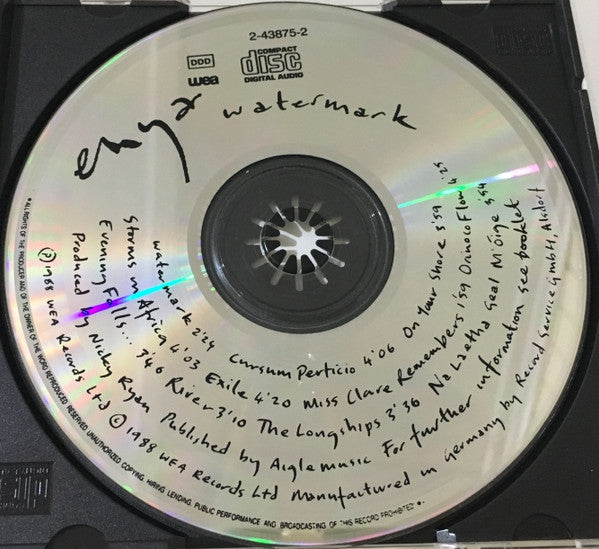 2-43875-2
DDD
COMPACT
disc
DIGITAL AUDIO
wea
enya watermark
watermark 2'24 Cursum Perficio 4'06 On Your Shore 3'59
Storms in Africa 4'03 Exile 4'20 Miss Clare Remembers 1'59 Orinoco Flow 4'25
Evening Falls... 3'46 River 3'10 The Longships 3'36 Na Laetha Geal M'Óige 3'54
Produced by Nicky Ryan Published by Aigle music For further information see booklet
℗ 1988 WEA Records Ltd © 1988 WEA Records Ltd Manufactured in Germany by Record Service GmbH, Alsdorf
• ALL RIGHTS OF THE PRODUCER AND OF THE OWNER OF THE WORK REPRODUCED RESERVED. UNAUTHORIZED COPYING, HIRING, LENDING, PUBLIC PERFORMANCE AND BROADCASTING OF THIS RECORD PROHIBITED •